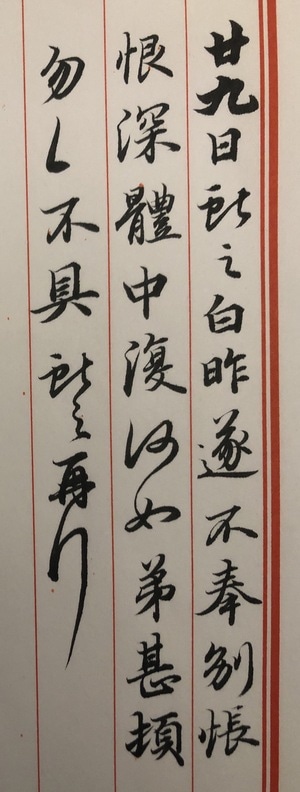 廿九日獻之白昨遂不奉別悵
恨深體中復何如弟甚頓
匆匆不具獻之再行